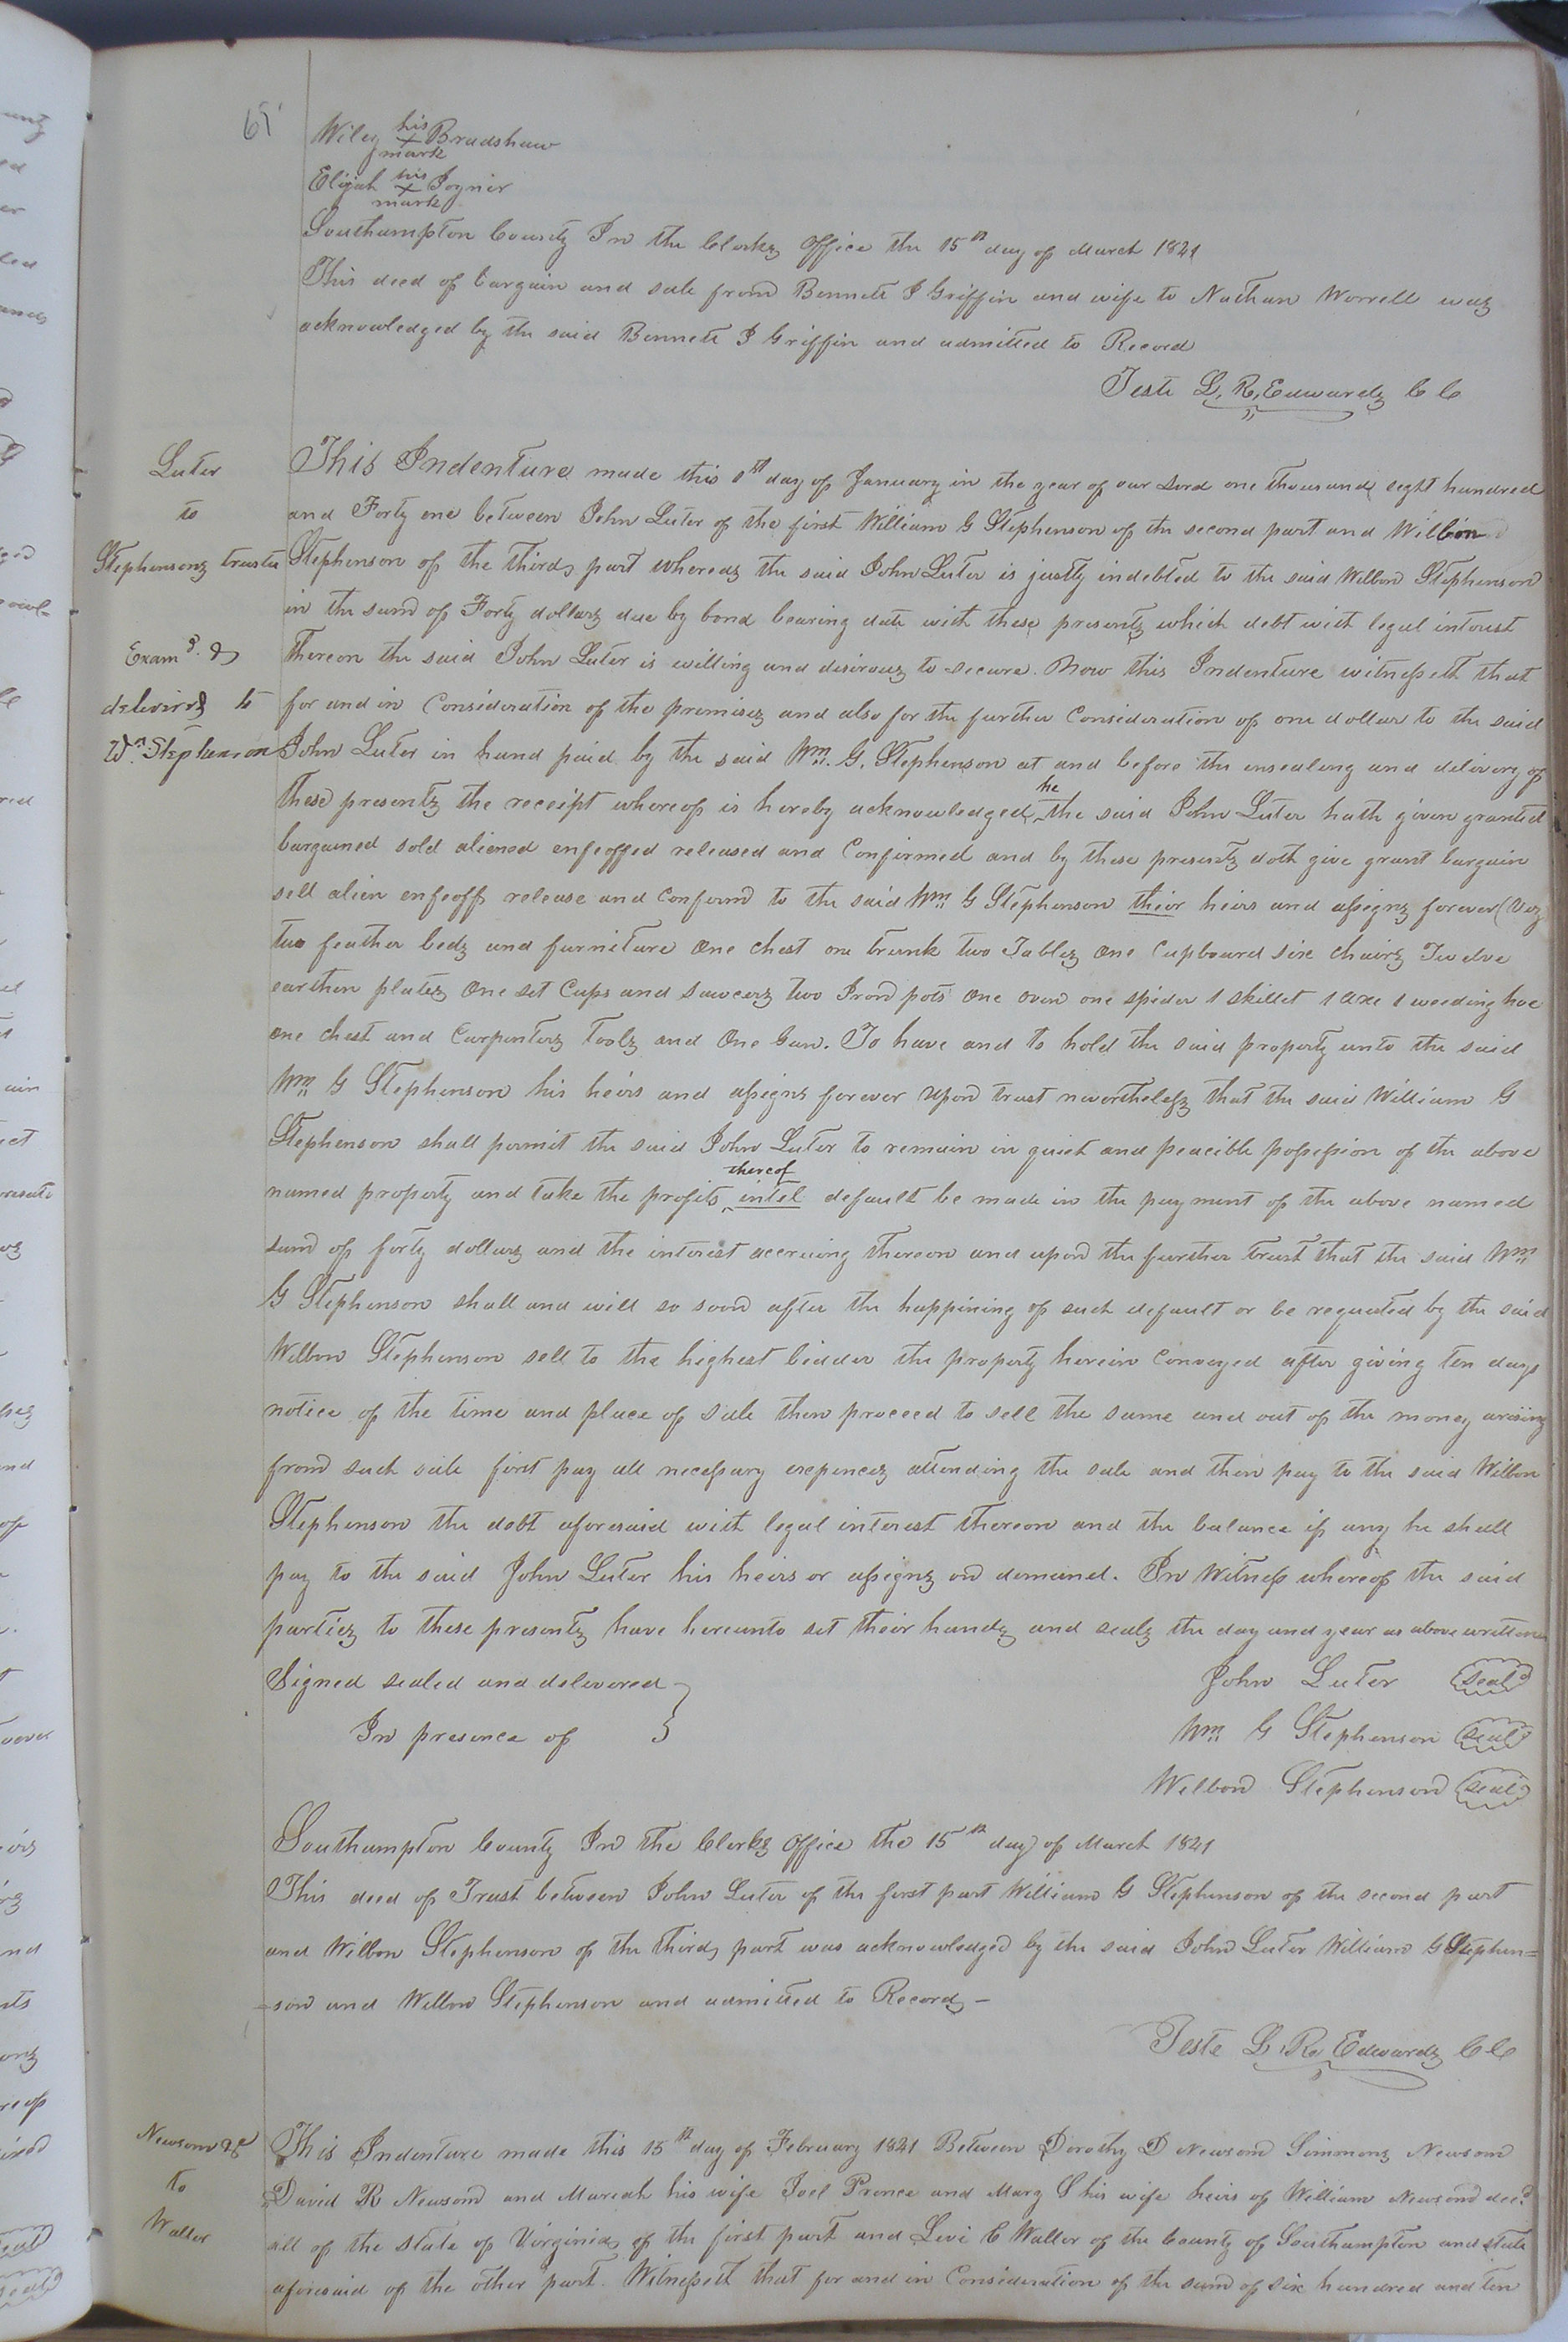 65
Wiley his x mark Bradshaw
Elijah his x mark Joyner
Southampton County In the Clerks office the 15th day of March 1841
This deed of bargain and sale from Bennett J Griffin and wife to Nathan Worrell was
acknowledged by the said Bennett J Griffin and admitted to Record
Teste L. R. Edwards CC
Luter
to
Stephensons trustee
Examd. &
deliverd to
Wm. Stephenson
This Indenture made this 1th day of January in the year of our Lord one thousand eight hundred
and Forty one between John Luter of the first William G Stephenson of the second part and Wilbon
Stephenson of the third part whereas the said John Luter is justly indebted to the said Wilbon Stephenson
in the sum of Forty dollars due by bond bearing date with these presents which debt with legal interest
thereon the said John Luter is willing and desirous to secure. Now this Indenture witnesseth that
for and in Consideration of the premises and also for the further Consideration of one dollar to the said
John Luter in hand paid by the said Wm. G. Stephenson at and before the ensealing and delivery of
these presents the receipt whereof is hereby acknowledged he the said John Luter hath given granted
bargained sold aliened enfeoffed released and Confirmed and by these presents doth give grant bargain
sell alien enfeoff release and Confirm to the said Wm G Stephenson their heirs and assigns forever (Viz
two feather beds and furniture one chest one trunk two Tables one Cupboard six chairs Twelve
earthen plates one set Cups and sawcers two Iron pots one oven one spider 1 skillet 1 axe 1 weeding hoe
one chest and Carpenters Tools and One Gun. To have and to hold the said property unto the said
Wm G Stephenson his heirs and assigns forever upon trust nevertheless that the said William G
Stephenson shall permit the said John Luter to remain in quiet and peacible possession of the above
named property and take the profits thereof intel default be made in the payment of the above named
sum of forty dollars and the interest accruing thereon and upon the further trust that the said Wm
G Stephenson shall and will so soon after the happining of such default or be requested by the said
Wilbon Stephenson sell to the highest bidder the property herein Conveyed after giving ten days
notice of the time and place of sale then proceed to sell the same and out of the money arising
from such sale first pay all necessary expences attending the sale and then pay to the said Wilbon
Stephenson the debt aforesaid with legal interest thereon and the balance if any he shall
pay to the said John Luter his heirs or assigns on demand. In Witness whereof the said
parties to these presents have hereunto set their hands and seals the day and year as above written
Signed sealed and delivered
In presence of
John Luter seal
Wm G Stephenson seal
Wilbon Stephenson seal
Southampton County In the Clerks office the 15th day of March 1841
This deed of Trust between John Luter of the first part William G Stephenson of the second part
and Wilbon Stephenson of the third part was acknowledged by the said John Luter William G Stephen=
=son and Wilbon Stephenson and admitted to Record -
Teste L. R. Edwards CC
Newsom &c
to
Waller
This Indenture made this 15th day of February 1841 Between Dorothy D Newsom Simmons Newsom
David R Newsom and Mariah his wife Joel Prince and Mary S his wife heirs of William Newsom decd
all of the State of Virginia of the first part and Levi C Waller of the County of Southampton and state
aforesaid of the other part. Witnesseth that for and in Consideration of the sum of six hundred and ten